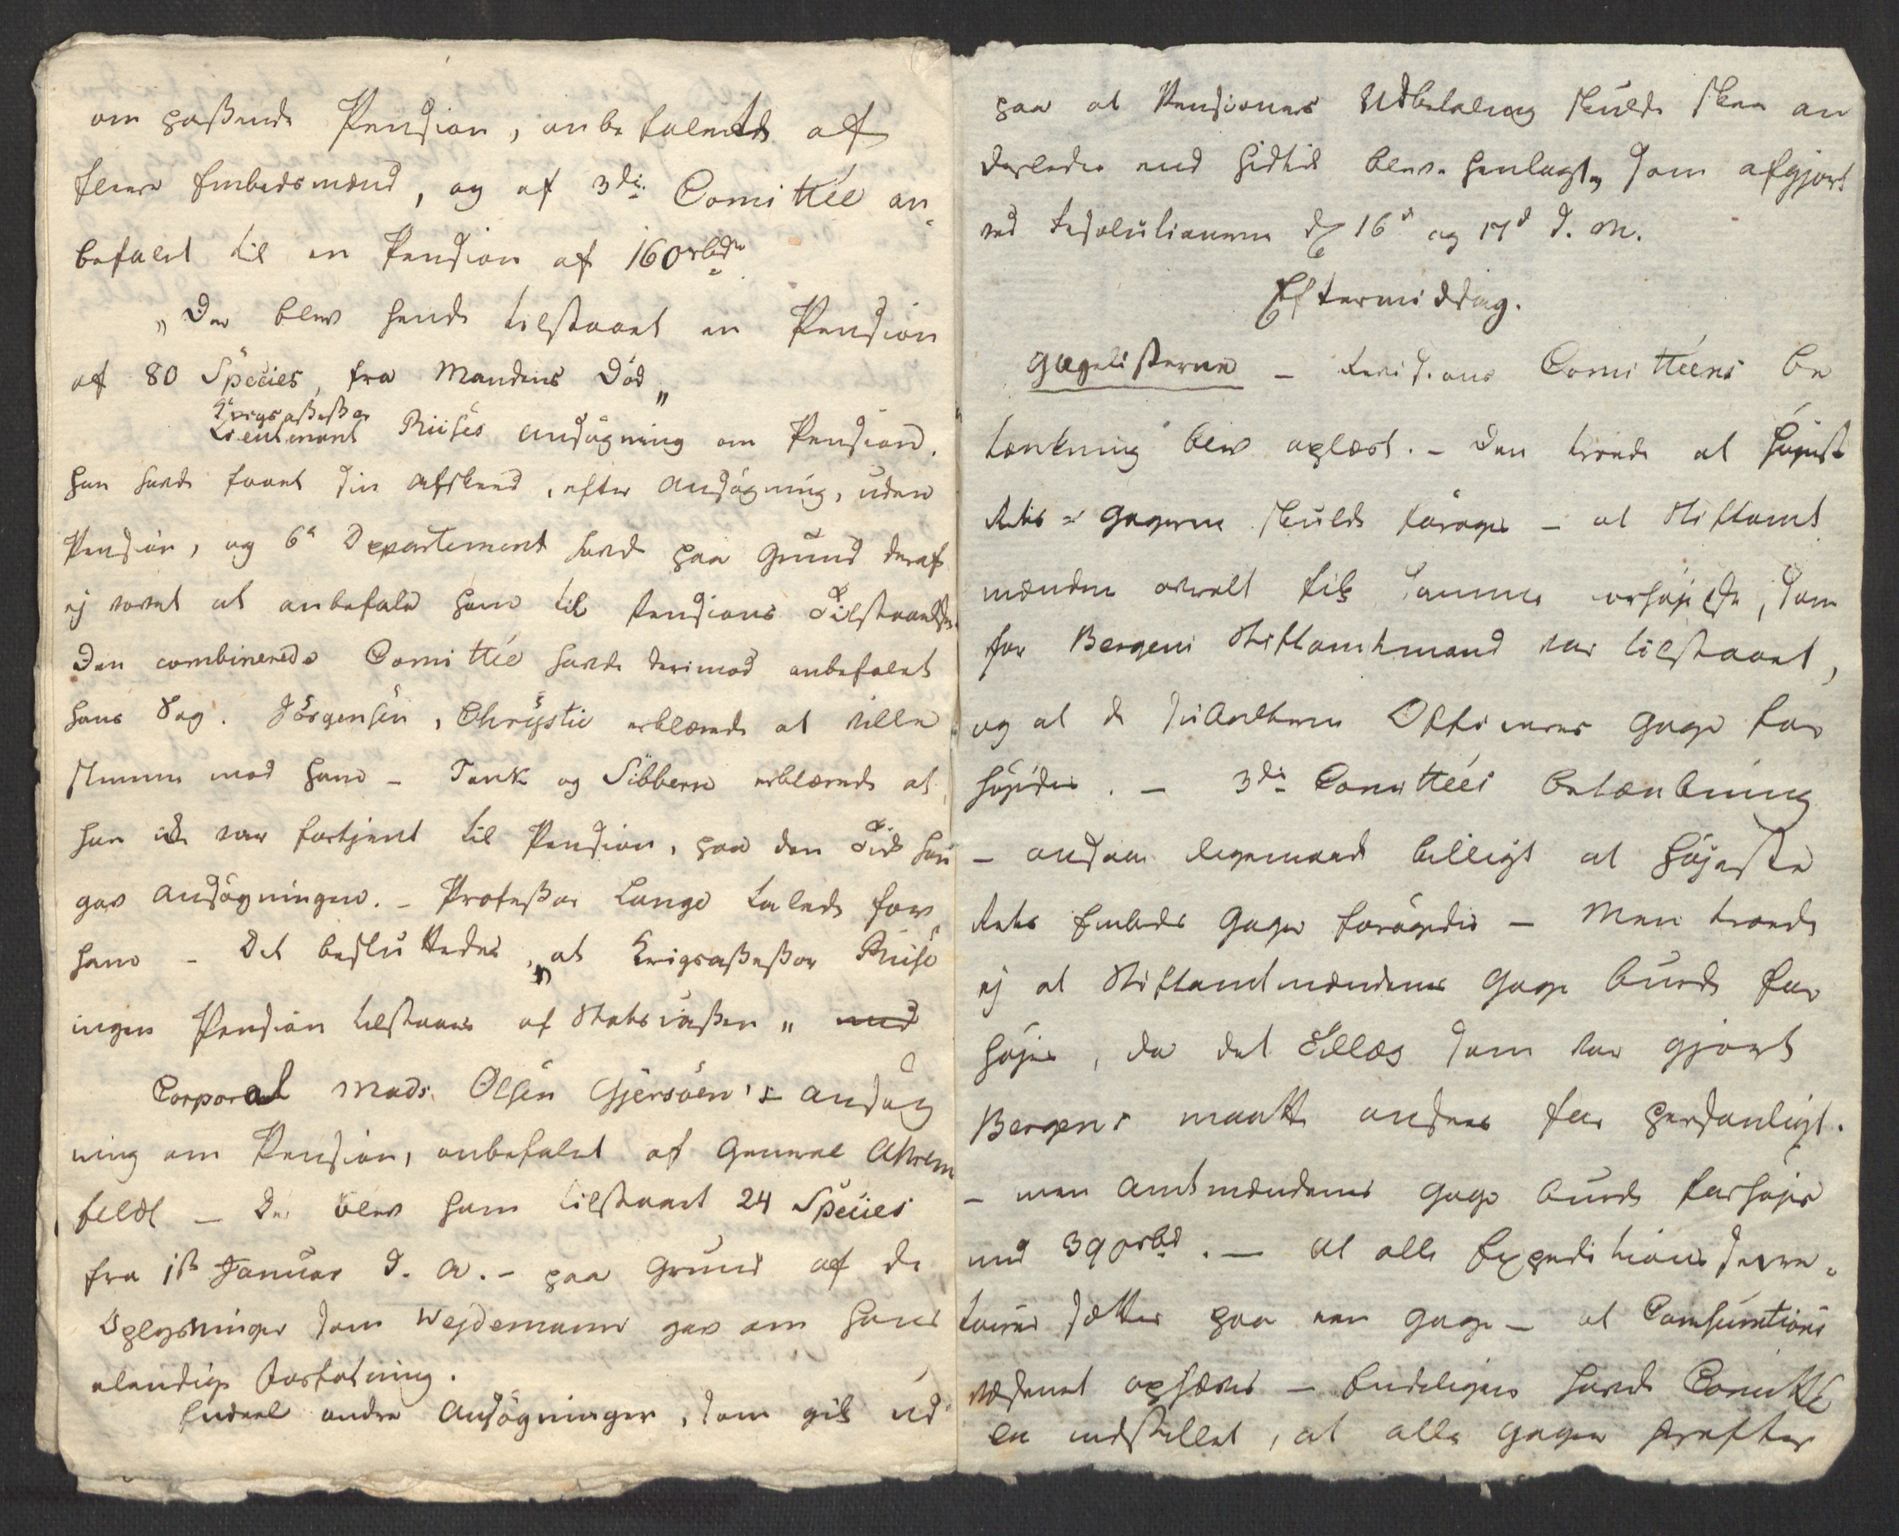 om passende Pension, anbefalende af
flere Embedsmænd, og af 3die Comittée an-
befalet til en Pension af 160 rbdr
„Der blev hende tilstaaet en Pension
af 80 Species, fra Mandens Död„
Krigsassessor
Lieutenant Riises Ansögning om Pension.
han havde faaet sin Afskeed, efter Ansögning, uden
Pension, og 6te Departement havde paa Grund deraf
ej vovet at anbefale ham til Pensions Tilstaaelse.
Den combinerede Comittée havde derimod anbefalet
hans Sag. Jörgensen, Chrystie erklærede at ville
stemme mod ham – Tank og Sibbern erklærede at
han ikke var fortjent til Pension, paa den Tid han
gav Ansögningen. – Professor Lange talede for
ham – Det besluttedes, „at Krigsassessor Riise
ingen Pension tilstaaes af Statscassen„ med
Corporal Mads Olsen Gjersöen's Ansög
ning om Pension, anbefalet af General Ahren
feldt – Der blev ham tilstaaet 24 Species
fra 1ste Januar d. A. – paa Grund af de
Oplysninger som Wejdemann gav om hans
elendige Forfatning.
Endeel andre Ansögninger, som gik ud
paa at Pensioners Udbetaling skulde skee an
derledes end hidtil blev henlagte, som afgjort
ved Resolutionerne af 16de og 17de d. M.
Eftermiddag.
Gagelisterne – Revisions Comitteens be
tænkning blev oplæst. – Den troede at Höjeste
Rets Gagerne skulde foröges – at Stiftamt
mændene overalt fik samme forhöjelse, som
for Bergens Stiftamtmand var tilstaaet,
og at de Subalterne Officerers Gage for
höjedes. – 3die Comittées betænkning
– ansaae ligemeend billigt at Höjeste
Rets Embeds Gage forögedes – Men troede
ej at Stiftamtmændenes Gage burde for
höjes, da det Tillæg som var gjort
Bergens maatte ansees for personligt.
– men Amtmændenes Gage burde forhöjes
med 390 rbd. – at alle Expeditionssecre-
tairer sættes paa een Gage – at Consumtions
væsenet ophæves – Endeligen havde Comitté
en indstillet, at alle Gager herefter